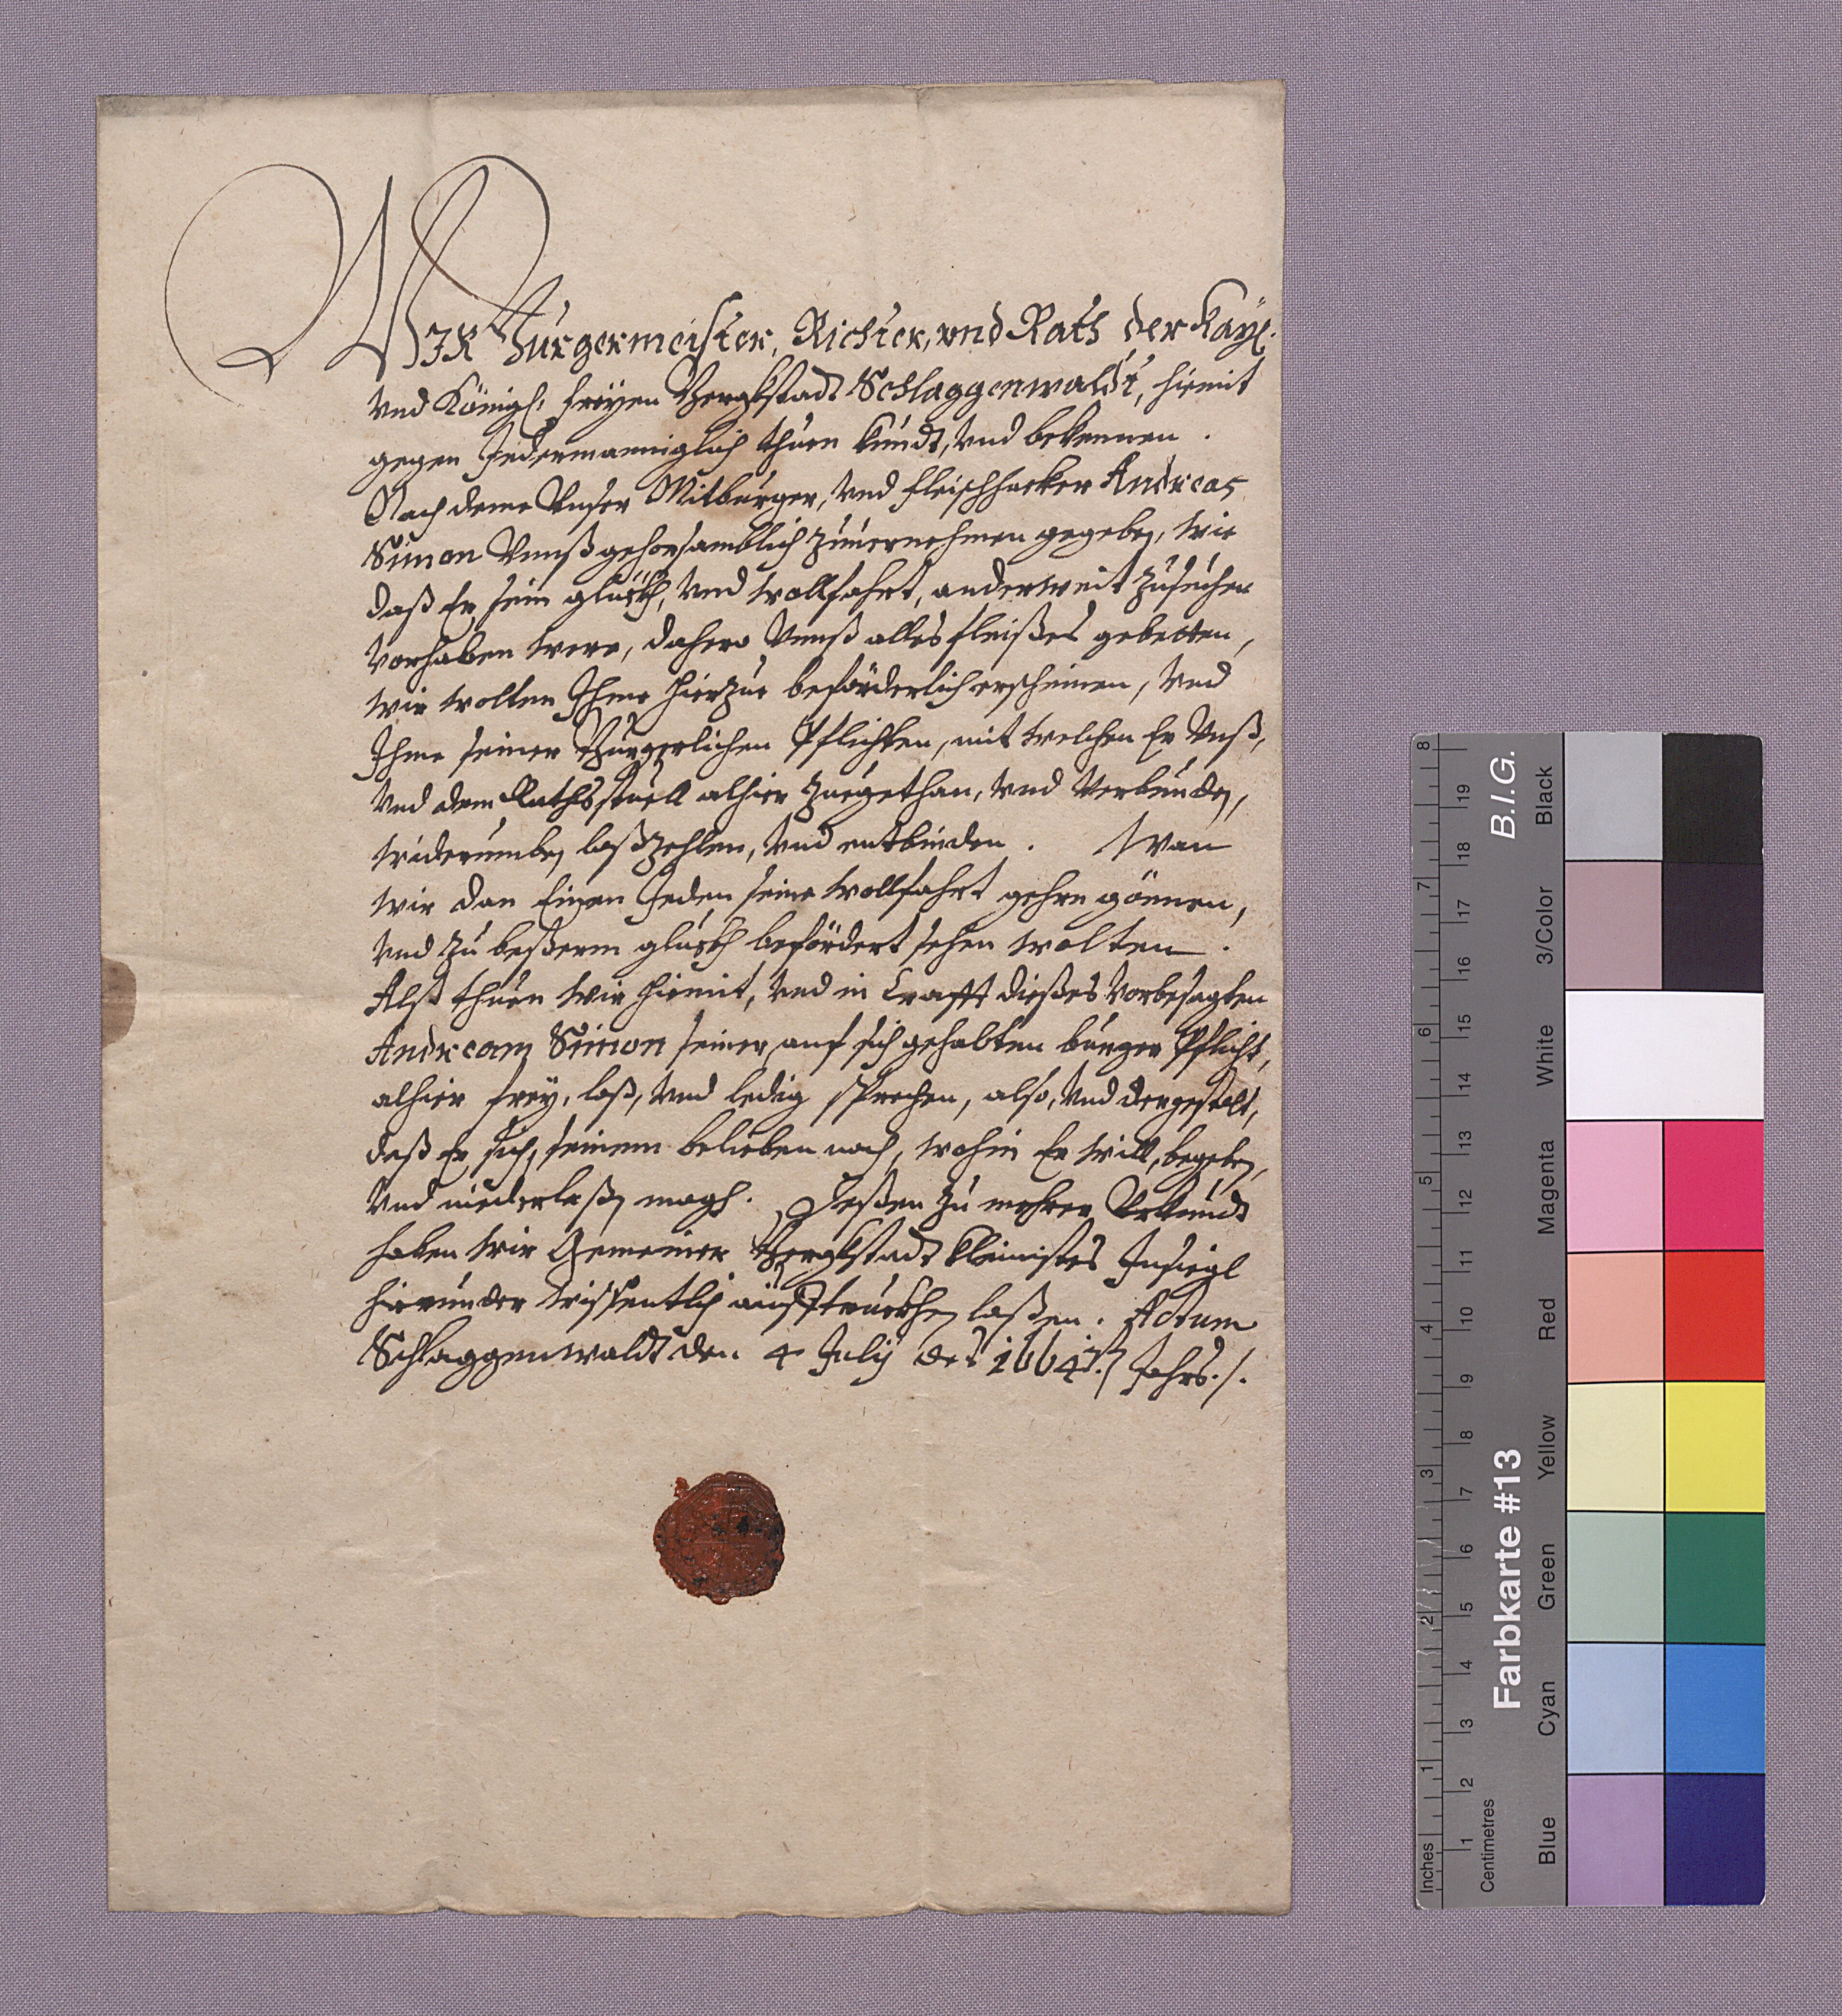 WIR Burgermeister, Richter, vnd Rath der Kaÿl:
vnd Königl: freÿen Bergkstadt Schlaggenwaldt, hiemit
gegen Jedermanniglich thuen kundt, vnd bekennen.
Nach deme Vnser Mitburger, vnd fleischhacker Andreas
Simon Vnnß gehorsamblich zuuernehmen gegeben, wie
daß Er sein glückh, vnd wollfahrt, anderweit zusuchen
vorhaben were, dahero Vnnß alles fleißes gebetten,
wir wolten Ihme hierzue beförderlich erscheinen, vnd
Ihme seiner Bürgerlichen Pflichten, mit welchen Er Vnß,
vnd dem Rathsstuell alhier zuegethan, vnd verbunden,
widerumben loßzehlen, vnd entbinden. Wan
wir dan Einen Jeden seine wollfahrt gehrn gönnen,
vnd zu beßerm glückh befördert sehen wolten.
Alß thuen wir hiemit, vnd in Crafft dießes vorbesagten
Andream Simon seiner auf sich gehabten burger Pflicht,
alhier freÿ, loß, vnd ledig sprechen, also, vnd dergestalt,
daß Er sich, seinem belieben nach, wohin Er will, begeben,
vnd niederlaßen magh. Deßen zu mehrer Vrkundt
haben wir Gemeiner Bergkstadt kleinistes Insiegl
hierunder wissentlich aufftruckhen laßen. Actum
Schlaggenwaldt den 4 Julij des 1664.ten Jahrs./.
Inches
Centimetres
1 2 3 4 5 6 7 8
1 2 3 4 5 6 7 8 9 10 11 12 13 14 15 16 17 18 19
Farbkarte #13
B.I.G.
Blue
Cyan
Green
Yellow
Red
Magenta
White
3/Color
Black